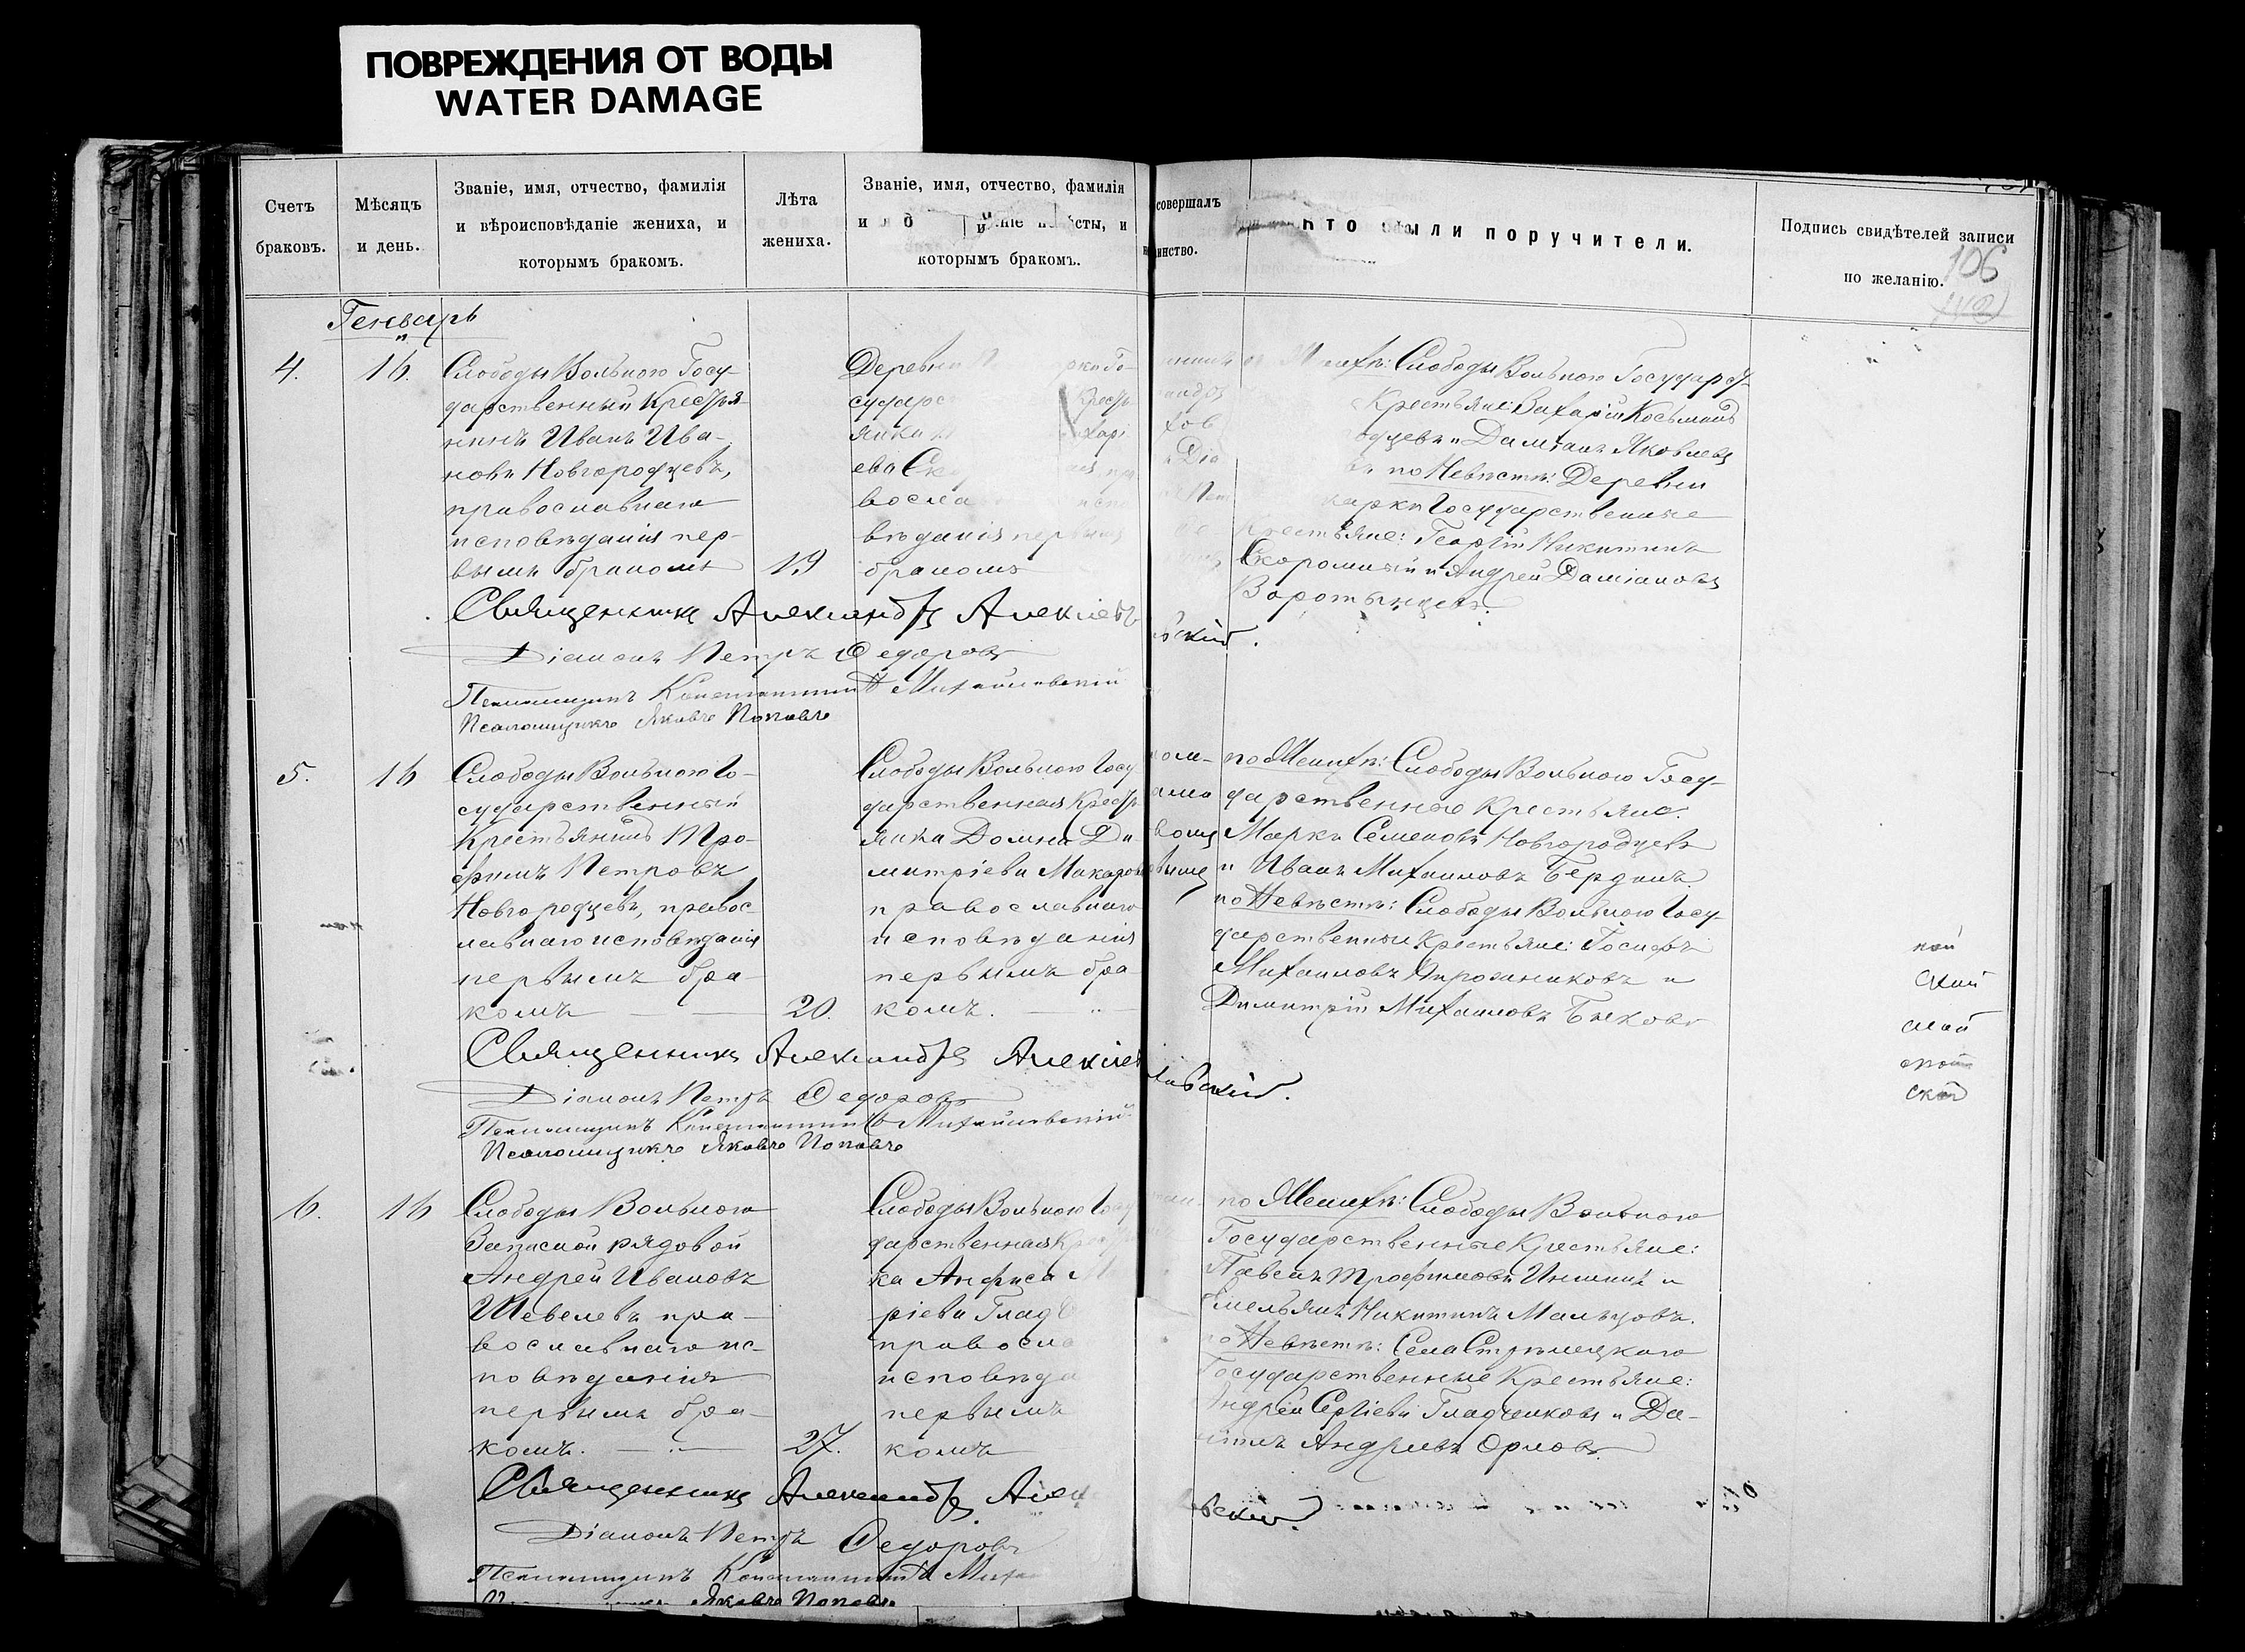 ПОВРЕЖДЕНИЯ ОТ ВОДЫ
WATER DAMAGE
Счетъ браковъ.
Мѣсяцъ и день.
Званіе, имя, отчество, фамилія и вѣроисповѣданіе жениха, и которымъ бракомъ.
Лѣта жениха.
Званіе, имя, отчество, фамилія
и ніе сты, и
которымъ бракомъ.
совершалъ
инство.
Кто были поручители.
Подпись свидѣтелей записи по желанію.
106
Генварь
4.
16.
Слободы Вольного Госу-
дарственный Крестья-
нинъ Иванъ Ива-
новъ Новгородцевъ,
православнаго
исповѣданія пер-
вымъ бракомъ
19
Деревни рки Го-
сударс Кресть
янка харі
ева Ск
восла
вѣданія первымъ
бракомъ
Слободы Вольного Государст-
Крестьяне: Захарій Косьминъ
одцевъ и Даміанъ Яковлевъ
по Невѣстѣ: Деревни
арки Государственные
Крестьяне: Георгій Никитинъ
Скоромный и Андрей Даміановъ
Воротынцевъ.
Священникъ Александръ Алексѣевскій.
Діаконъ Петръ Федоровъ
Псаломщикъ Константинъ Михайловскій
Псаломщикъ Яковъ Поповъ
5.
16
Слободы Вольного Го-
сударственный
Крестьянинъ Тро-
фимъ Петровъ
Новгородцевъ, правос-
лавнаго исповѣданія
первымъ бра-
комъ
20.
Слободы Вольного Госу
дарственная Кресть
янка Домна Ди-
митріева Макаров
православнаго
исповѣданія
первымъ бра-
комъ.
по Женихѣ: Слободы Вольного Госу-
дарственные Крестьяне:
Марко Семеновъ Новгородцевъ
и Иванъ Михаиловъ Бердинъ.
по Невѣстѣ: Слободы Вольного Госу-
дарственные Крестьяне: Іосифъ
Михаиловъ и
Димитрій Михаиловъ Быковъ
ной
ской
ской
Священникъ Александръ Алексѣевскій.
Діаконъ Петръ Федоровъ
Псаломщикъ Константинъ Михайловскій
Псаломщикъ Яковъ Поповъ
6.
16
Слободы Вольного
Запасной рядовой
Андрей Ивановъ
Шевелевъ пра-
вославнаго ис-
повѣданія
первымъ бра-
комъ.
27.
Слободы Вольного Госу
дарственная Кресть
ка Анфиса
ріева Глад
правосла
исповѣда
первымъ
комъ
по Женихѣ: Слободы Вольного
Государственные Крестьяне:
Павелъ Трофимовъ и
Емельянъ Никитинъ Мальцовъ.
по Невѣстѣ: Села Стрѣлецкого
Государственные Крестьяне:
Андрей Сергіевъ Гладченковъ и Да-
Андреевъ Орловъ.
Священникъ Александръ Алек вскій.
Діаконъ Петръ Федоровъ
Псаломщикъ Константинъ Миха
Яковъ Поповъ